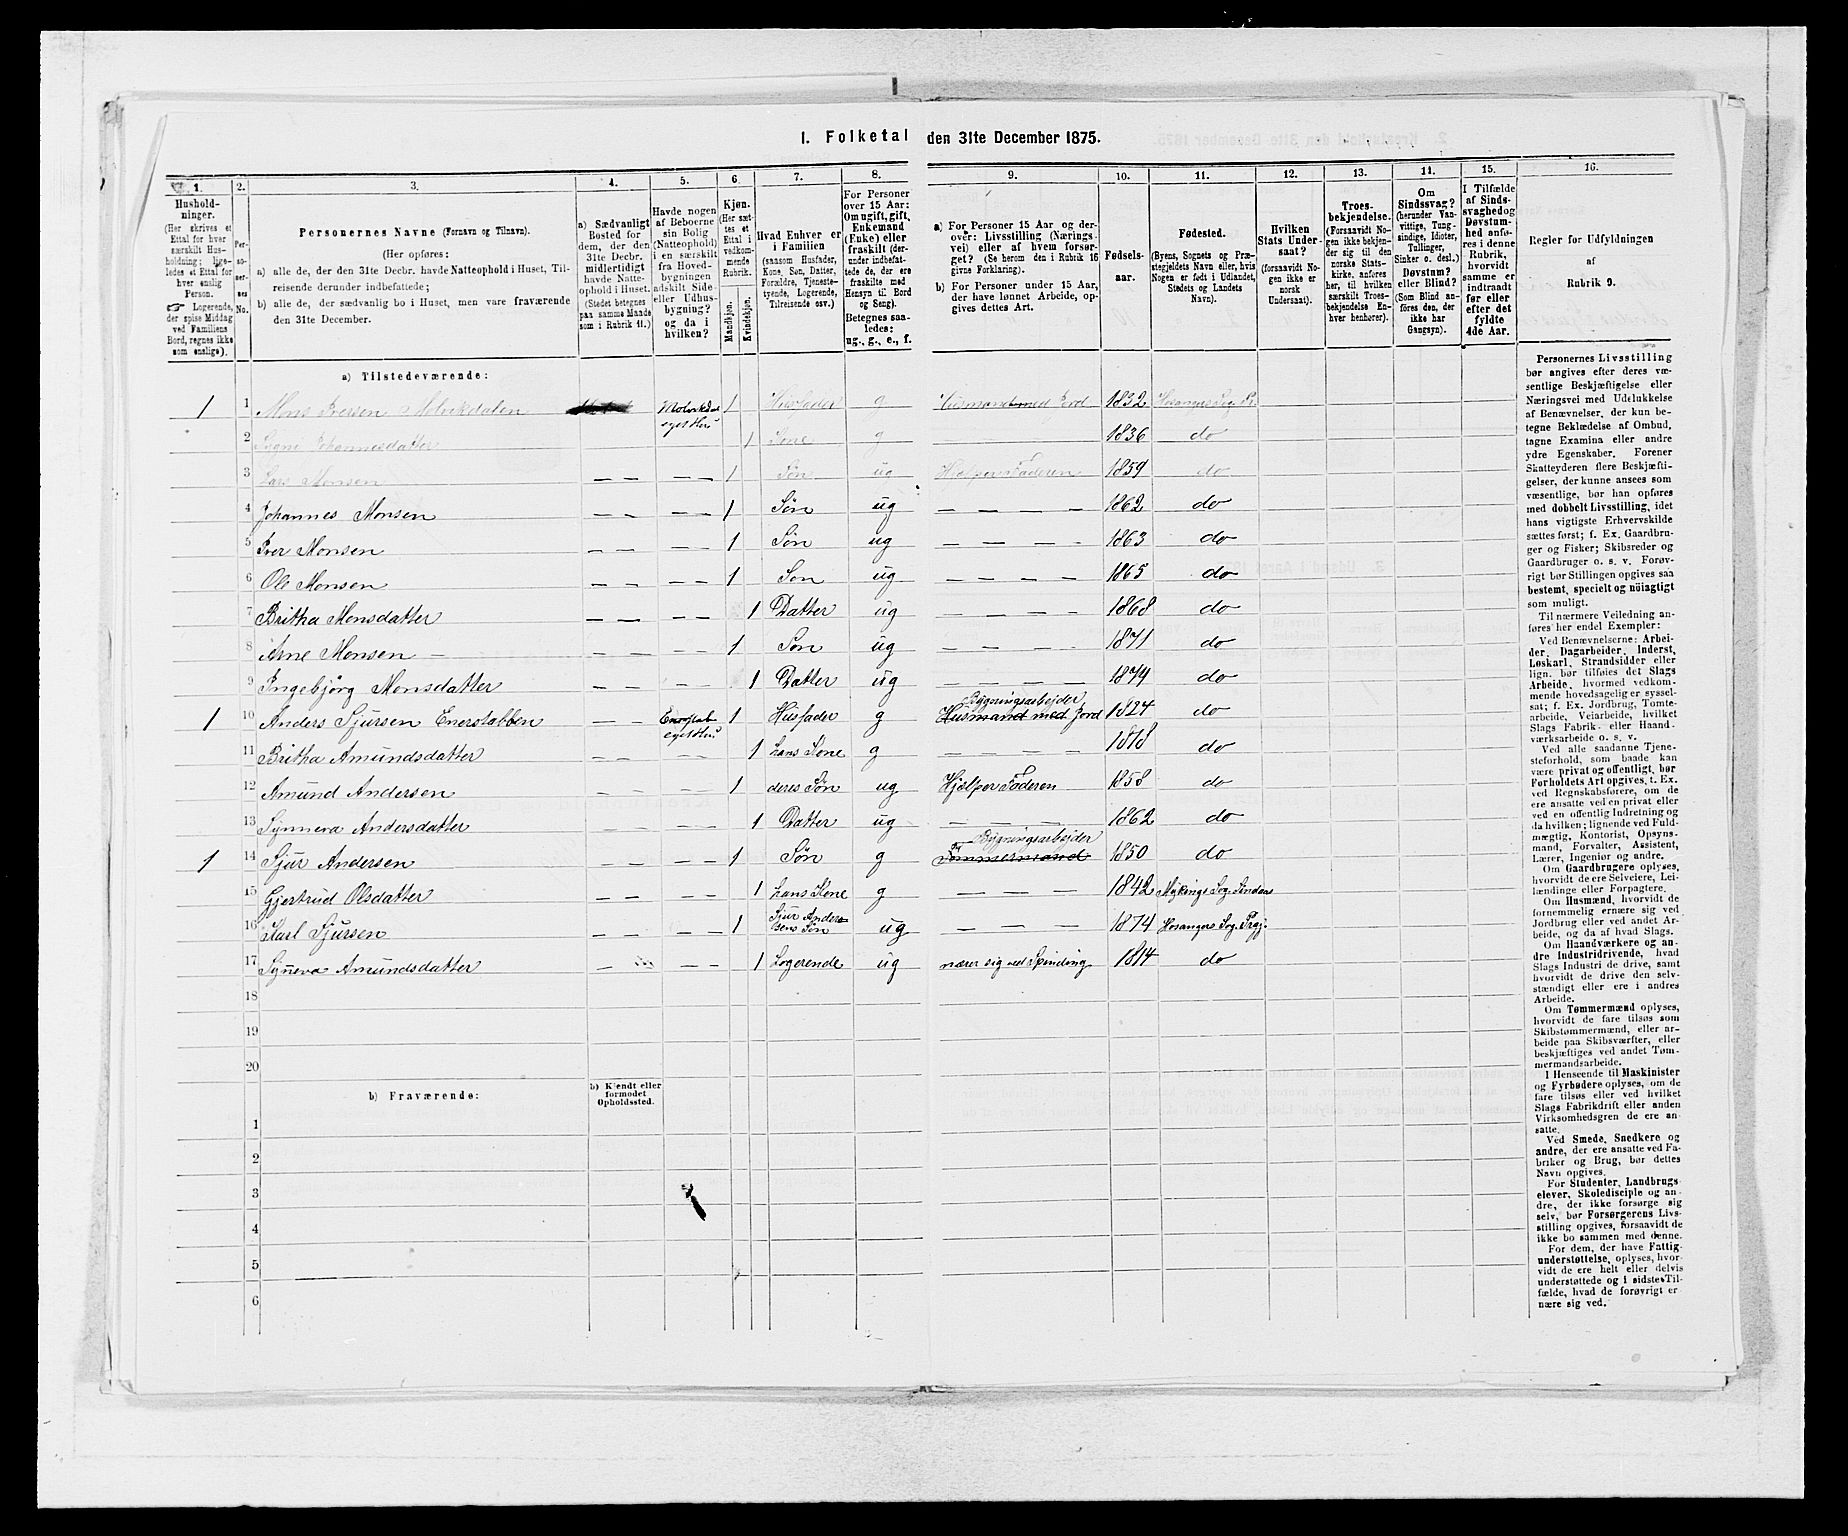 1. Folketal den 31te December 1875.
1. 2. 3. 4. 5. 6. 7. 8. 9. 10. 11. 12. 13. 14. 15. 16.
Hushold-
ninger.
(Her skrives et
Ettal for hver
særskilt Hus-
holdning; lige-
ledes et Ettal for
hver enslig
Person.
☞ Logerende,
der spise Middag
ved Familiens
Bord, regnes ikke
som enslige).
Per-
so-
ner-
nes
No.
Personernes Navne (Fornavn og Tilnavn).
(Her opføres:
a) alle de, der den 31te Decbr. havde Natteophold i Huset, Til-
reisende derunder indbefattede;
b) alle de, der sædvanlig bo i Huset, men vare fraværende
den 31te December.
a) Sædvanligt
Bosted for
dem, der den
31te Decbr.
midlertidigt
havde Natte-
ophold i Huset.
(Stedet betegnes
paa samme Maade
som i Rubrik 11.)
Havde nogen
af Beboerne
sin Bolig
(Natteophold)
i en særskilt
fra Hoved-
bygningen
adskilt Side-
eller Udhus-
bygning?
og da i
hvilken?
Kjøn.
(Her sæt-
tes et
Ettal i
vedkom-
mende
Rubrik.
Mandkjøn.
Kvindekjøn.
Hvad Enhver er
i Familien
(saasom Husfader,
Kone, Søn, Datter,
Forældre, Tjeneste-
tyende, Logerende,
Tilreisende osv.)
For Personer
over 15 Aar:
Om ugift, gift,
Enkemand
(Enke) eller
fraskilt (der-
under indbefat-
tede de, der ere
fraskilte med
Hensyn til Bord
og Seng).
Betegnes saa-
ledes:
ug., g., e., f.
a) For Personer 15 Aar og der-
over: Livsstilling (Nærings-
vei) eller af hvem forsør-
get? (Se herom den i Rubrik 16
givne Forklaring).
b) For Personer under 15 Aar,
der have lønnet Arbeide, op-
gives dettes Art.
Fødsels-
aar.
Fødested.
(Byens, Sognets og Præ-
stegjeldets Navn eller, hvis
Nogen er født i Udlandet,
Stedets og Landets
Navn).
Hvilken
Stats Under-
saat?
(forsaavidt No-
gen ikke er
norsk
Undersaat).
Troes-
bekjendelse.
(Forsaavidt No-
gen ikke bekjen-
der sig til den
norske Stats-
kirke, anføres
her, til hvilken
særskilt Troes-
bekjendelse En-
hver henhører).
Om
Sindssvag?
(herunder Van-
vittige, Tung-
sindige, Idioter,
Tullinger,
Sinker o. desl.)
Døvstum?
eller Blind?
(Som Blind an-
føres den, der
ikke har
Gangsyn).
I Tilfælde
af Sinds-
svaghed og
Døvstum-
hed anfø-
res i denne
Rubrik,
hvorvidt
samme er
indtraadt
før eller
efter det
fyldte
4de Aar.
Regler for Udfyldningen
af
Rubrik 9.
a) Tilstedeværende:
1 1 Mons Iversen Molvikdalen Molvikdal eget Hus 1 Husfader g Husmand med Jord 1832 Hosangers Sog. Pr.
2 Sygni Johannesdatter 1 Kone g 1836 do
3 Lars Monsen — — — — 1 Søn ug Hjælper Faderen 1859 do
4 Johannes Monsen — — — — 1 Søn ug — — — — 1862 do
5 Iver Monsen — — — — 1 Søn ug — — — — 1863 do
6 Ole Monsen — — — — 1 Søn ug — — — — 1865 do
7 Britha Monsdatter — — — — 1 Datter ug — — — — 1868 do
8 Arne Monsen — — — — — 1 Søn ug — — — — 1871 do
9 Ingebjørg Monsdatter — — — — 1 Datter ug — — — — 1874 do
1 10 Anders Sjursen Enerstabben — — eget Hus 1 Husfader g Bygningsarbejder Husmand med Jord 1824 do
11 Britha Amundsdatter — — — — 1 hans Kone g — — — — 1818 do
12 Amund Andersen — — — — 1 deres Søn ug Hjælper Faderen 1858 do
13 Synneva Andersdatter — — — — 1 Datter ug — — — — 1862 do
1 14 Sjur Andersen — — — — 1 Søn g Bygningsarbejder Tømmermand 1850 do
15 Gjertrud Olsdatter — — — — 1 hans Kone g — — — 1842 Mykings Sog. Lindaas
16 Karl Sjursen — — — — 1 Sjur Andersens Søn ug — — — — 1874 Hosangers Sog. Prgj.
17 Syneva Amundsdatter — — — 1 Logerende ug nærer sig ved Spinding 1814 do
18
19
20
b) Fraværende:
b) Kjendt eller
formodet
Opholdssted.
1
2
3
4
5
6
Personernes Livsstilling
bør angives efter deres væ-
sentlige Beskjæftigelse eller
Næringsvei med Udelukkelse
af Benævnelser, der kun be-
tegne Beklædelse af Ombud,
tagne Examina eller andre
ydre Egenskaber. Forener
Skatteyderen flere Beskjæfti-
gelser, der kunne ansees som
væsentlige, bør han opføres
med dobbelt Livsstilling, idet
hans vigtigste Erhvervskilde
sættes først; f. Ex. Gaardbru-
ger og Fisker; Skibsreder og
Gaardbruger o. s. v. Forøv-
rigt bør Stillingen opgives saa
bestemt, specielt og nöiagtigt
som muligt.
Til nærmere Veiledning an-
føres her endel Exempler:
Ved Benævnelserne: Arbei-
der, Dagarbeider, Inderst,
Løskarl, Strandsidder eller
lign. bør tilføies det Slags
Arbeide, hvormed vedkom-
mende hovedsagelig er syssel-
sat; f. Ex. Jordbrug, Tomte-
arbeide, Veiarbeide, hvilket
Slags Fabrik- eller Haand-
værksarbeide o. s. v.
Ved alle saadanne Tjene-
steforhold, som baade kan
være privat og offentligt, bør
Forholdets Art opgives, t. Ex.
ved Regnskabsførere, om de
ere ansatte ved en privat eller
ved en offentlig Indretning og
da hvilken; lignende ved Fuld-
mægtig, Kontorist, Opsyns-
mand, Forvalter, Assistent,
Lærer, Ingeniør og andre.
Om Gaardbrugere oplyses,
hvorvidt de ere Selveiere, Lei-
lændinge eller Forpagtere.
Om Husmænd, hvorvidt de
fornemmelig ernære sig ved
Jordbrug eller ved andet Ar-
beide, og da af hvad Slags.
Om Haandværkere og an-
dre Industridrivende, hvad
Slags Industri de drive, samt
hvorvidt de drive den selv-
stændigt eller ere i andres
Arbeide.
Om Tømmermænd oplyses,
hvorvidt de fare tilsøs som
Skibstømmermænd, eller ar-
beide paa Skibsværfter, eller
beskjæftiges ved andet Tøm-
mermandsarbeide.
I Henseende til Maskinister
og Fyrbødere oplyses, om de
fare tilsøs eller ved hvilket
Slags Fabrikdrift eller anden
Virksomhedsgren de ere an-
satte.
Ved Smede, Snedkere og
andre, der ere ansatte ved Fa-
briker og Brug, bør dettes
Navn opgives.
For Studenter, Landbrugs-
elever, Skoledisciple og an-
dre, der ikke forsørge sig
selv, bør Forsørgerens Livs-
stilling opgives, forsaavidt de
ikke bo sammen med denne.
For dem, der have Fattig-
understøttelse, oplyses, hvor-
vidt de ere helt eller delvis
understøttede og i sidste Til-
fælde, hvad de forøvrigt er-
nære sig ved.